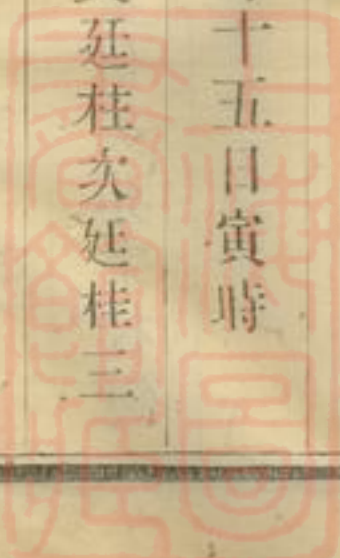 十五日寅時
廷桂次廷桂三